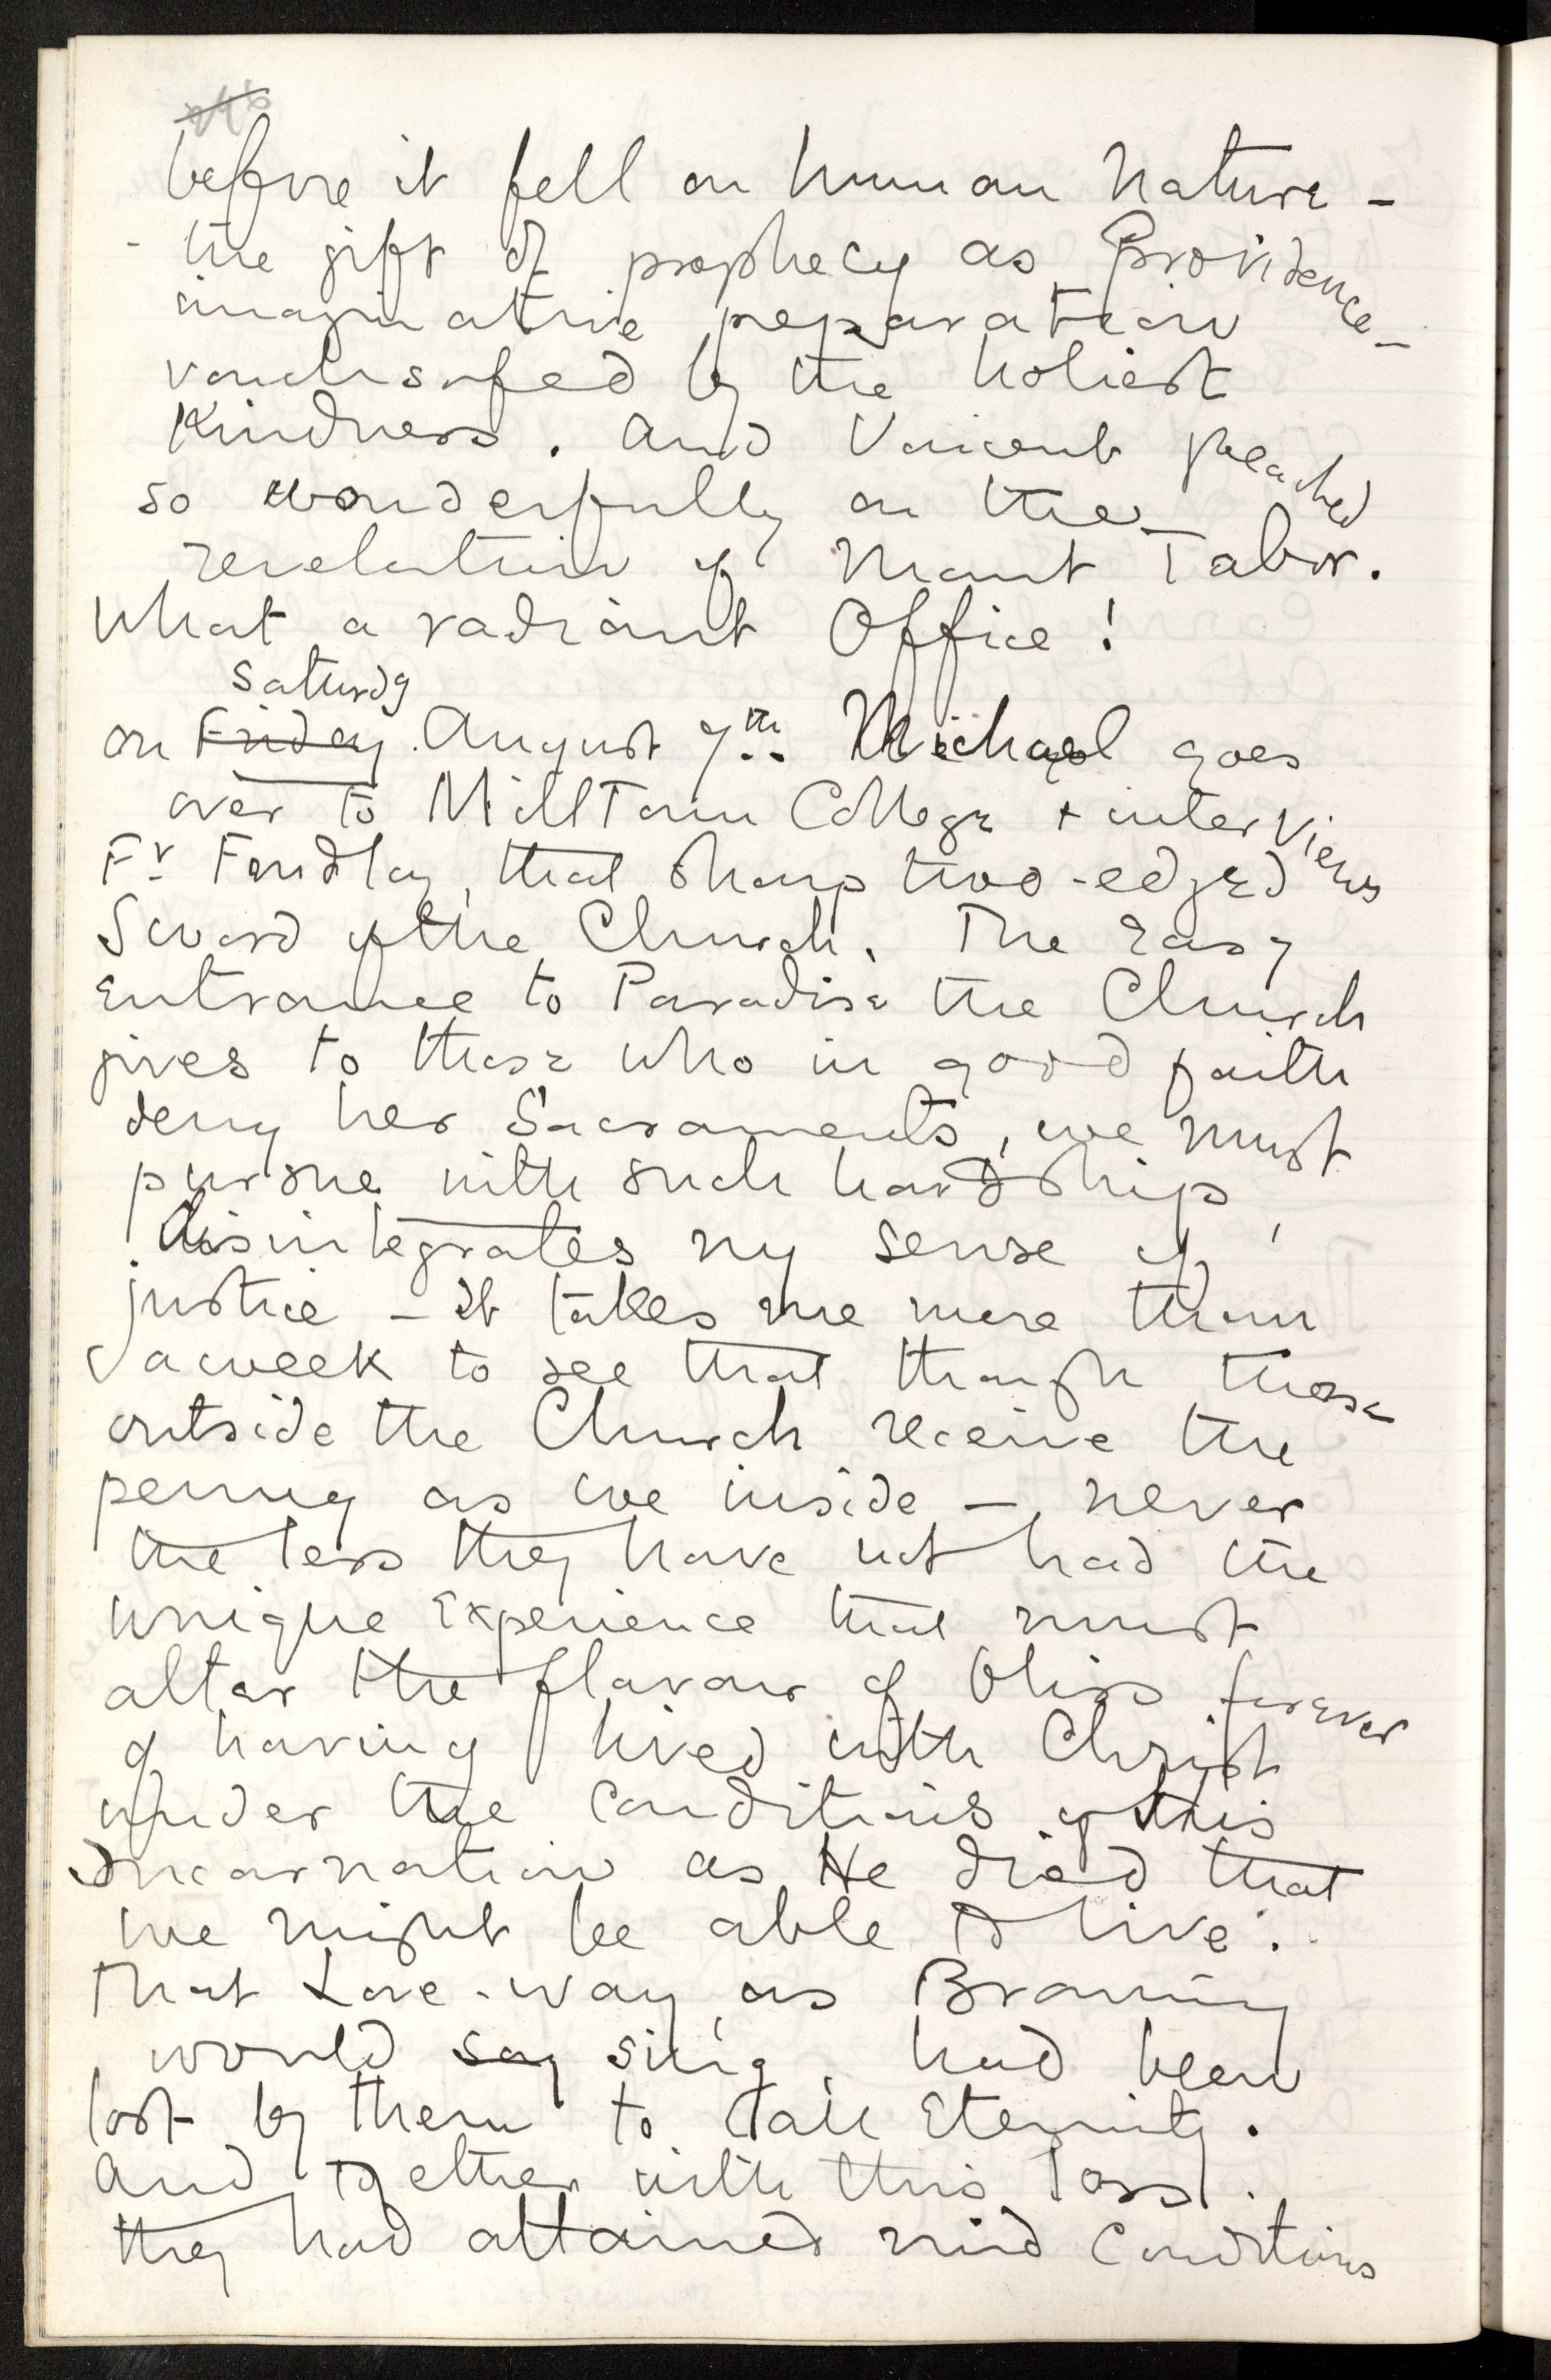 before it fell on human nature –
– the gift of prophecy as Providence –
imaginative preparation
vouchsafed by the holiest
Kindness. And Vincent preached
so wonderfully on the
revelation of Mount Tabor.
What a radiant Office!
Saturdy
on Friday. August 7th. Michael goes
over to MillTown College + interviews
Fr Findlay, that sharp two-edged
Sword of the Church. The easy
entrance to Paradise the Church
gives to those who in good faith
deny her Sacraments, we must
pursue with such hardship,
disintegrates my sense of
justice – It takes me more than
a week to see that though those
outside the Church receive the
penny as we inside – never
the less they have not had the
unique experience that must
alter the flavour of bliss forever
of having lived with Christ
under the conditions of this
Incarnation as He died that
we might be able to live.
That Love-way, as Browning
would say sing, had been
lost by them to all Eternity.
And together with this loss
they had attained mid conditions